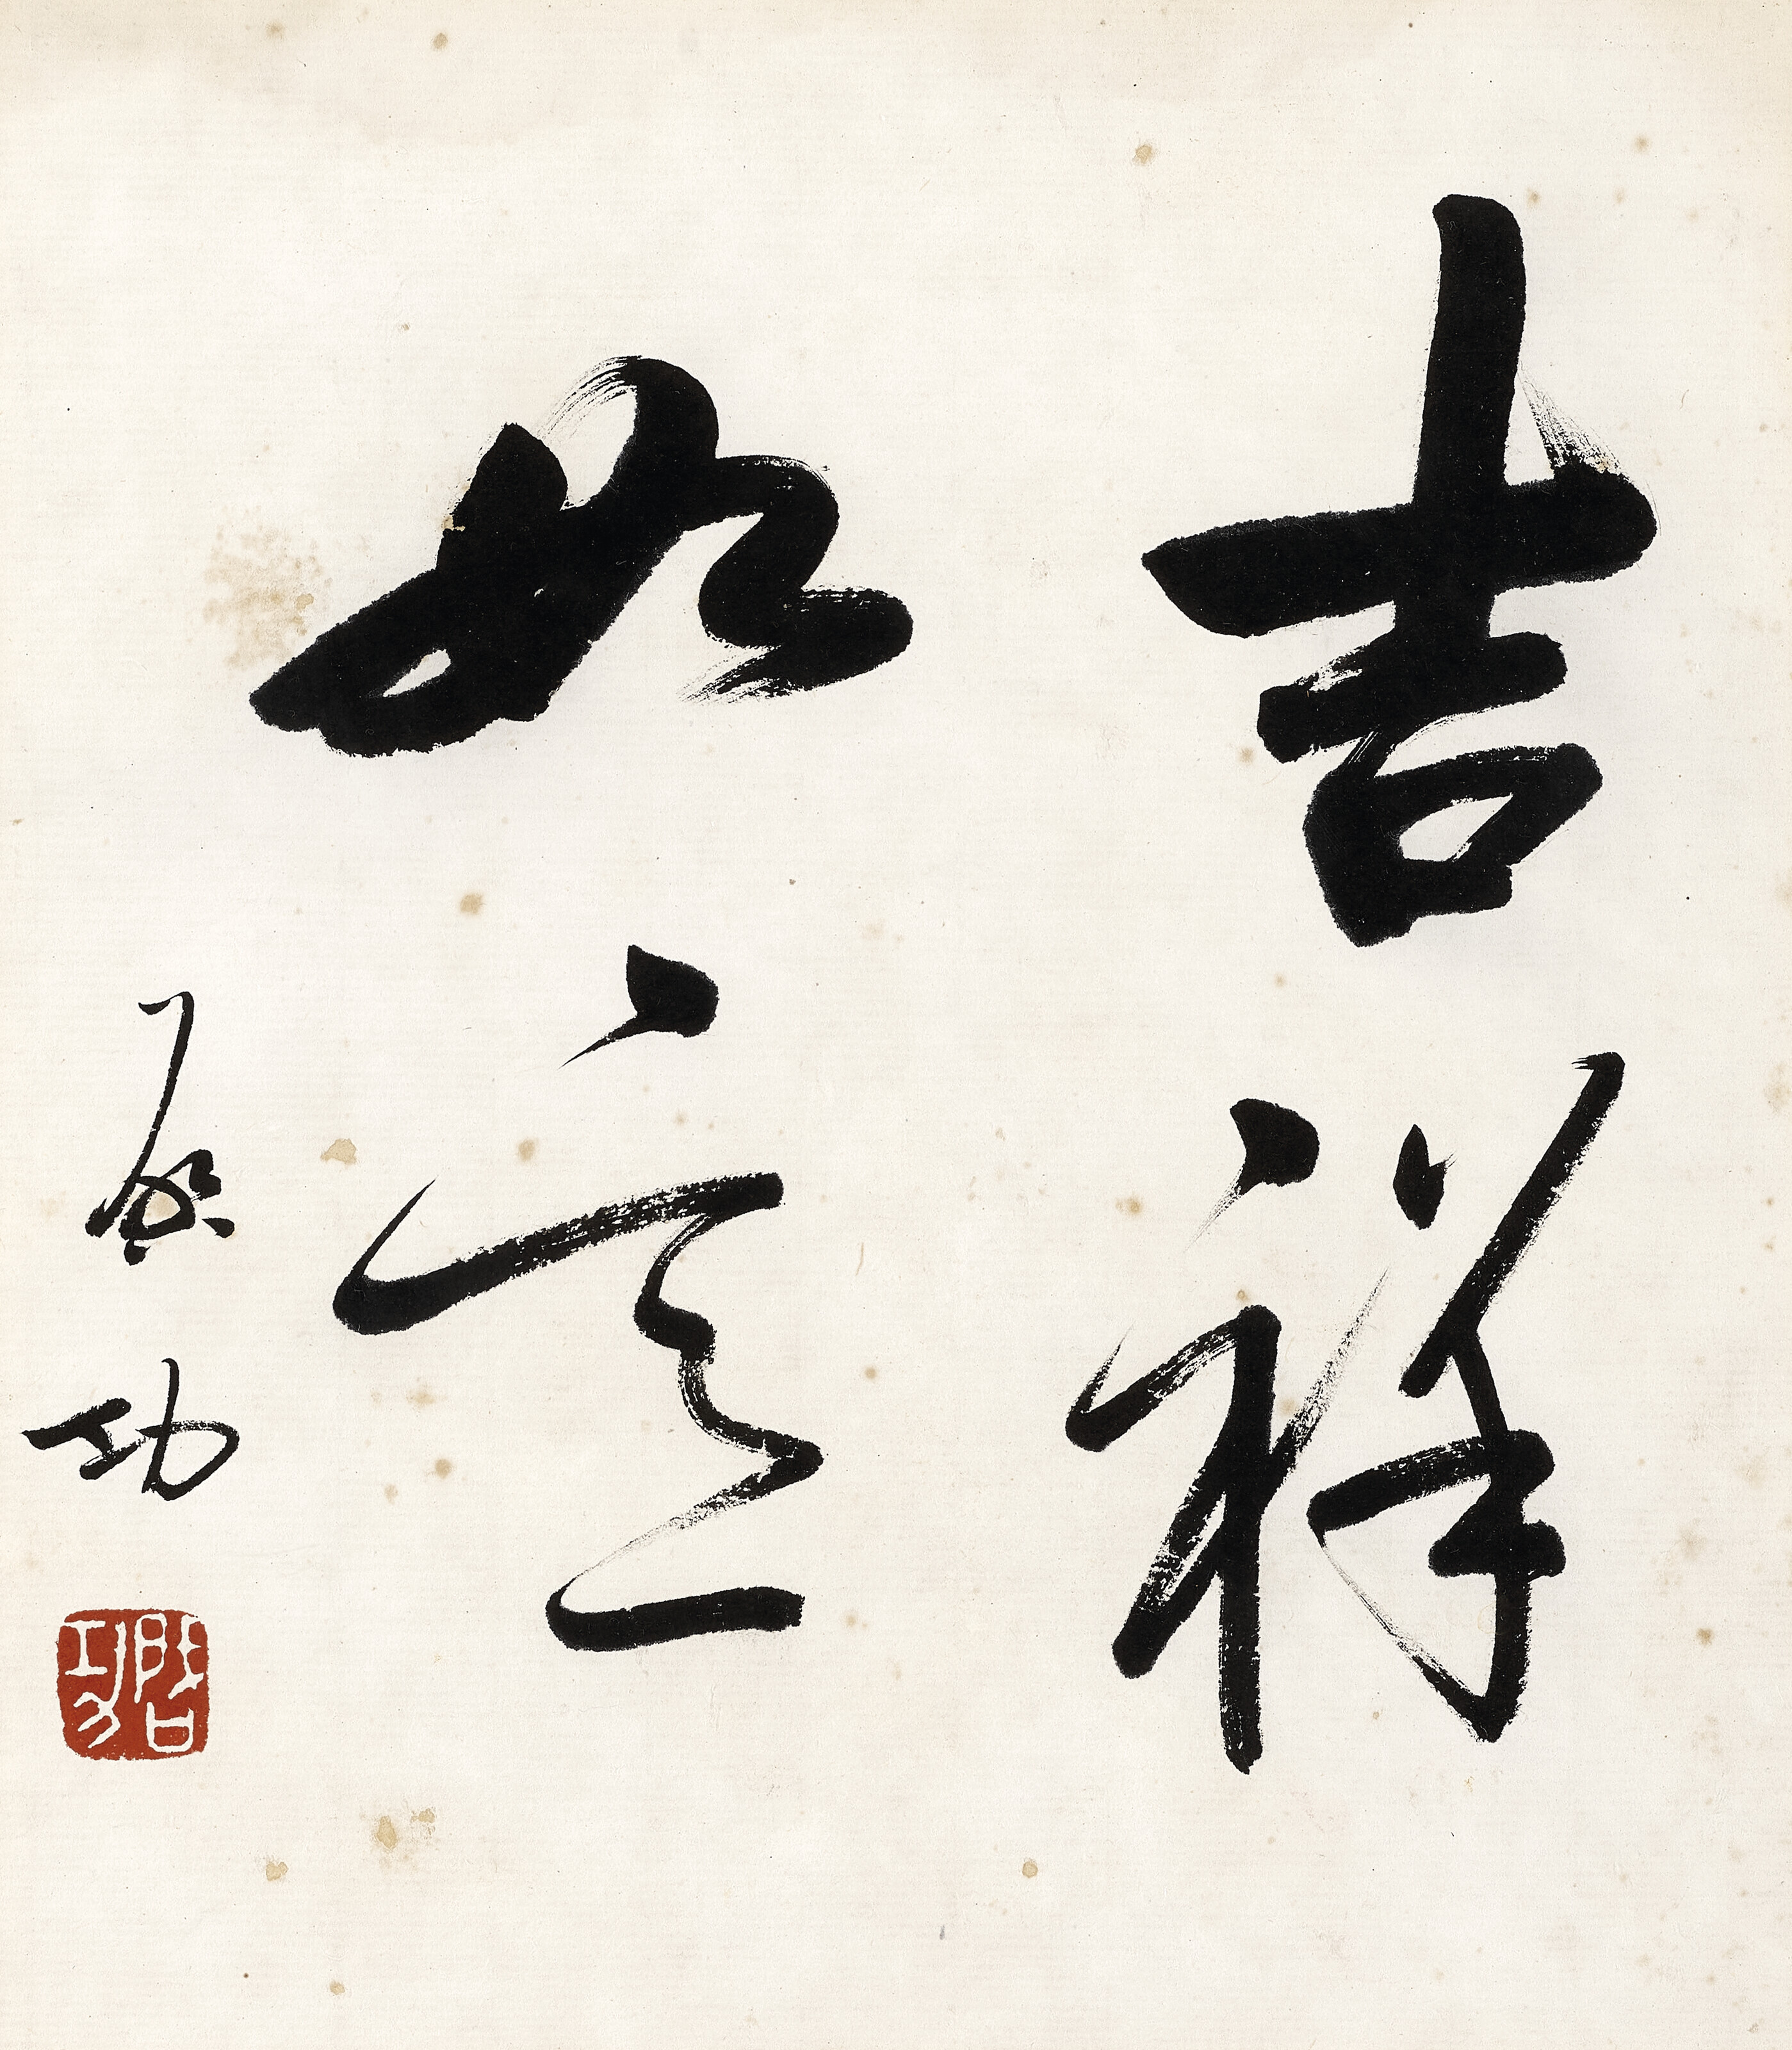 吉祥
如意
启功
启功